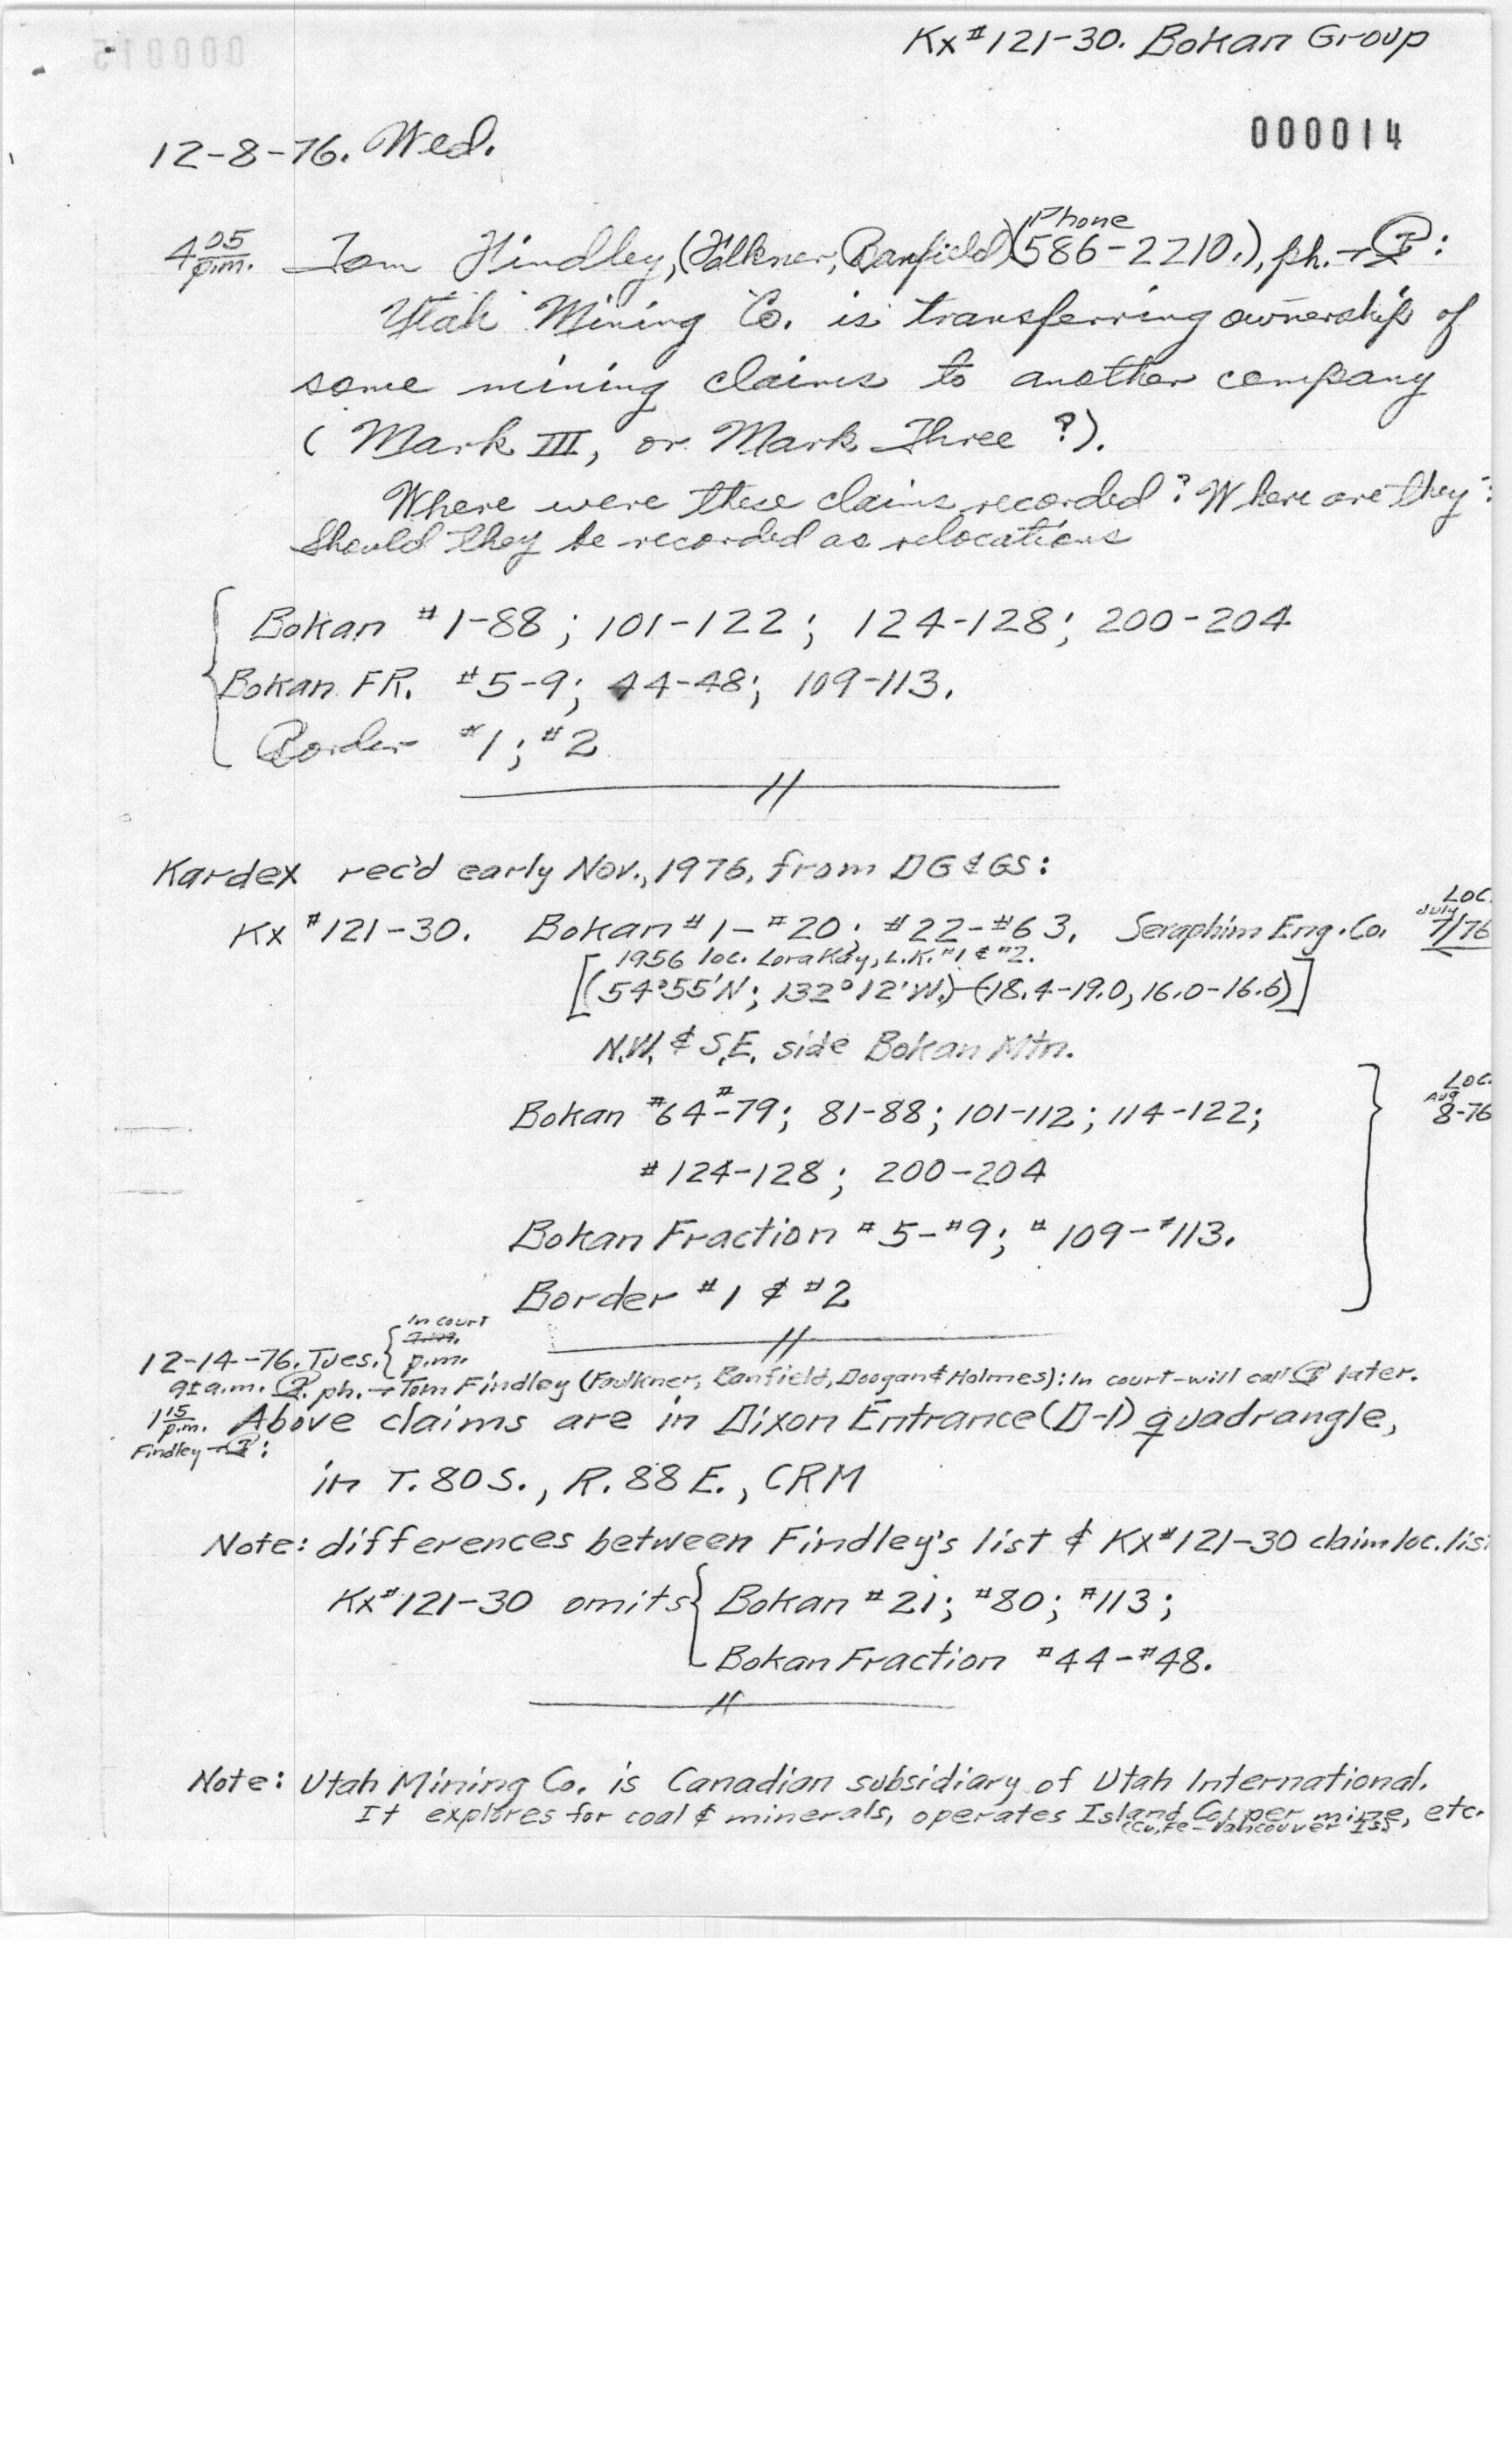 Kx #121-30. Bokan Group
000015
000014
12-8-76. Wed.
4 05 p.m. Tom Findley, (Folkner, Banfield) (Phone 586-2210.), ph. →:
Utah Mining Co. is transferring ownership of
some mining claims to another company
(Mark III, or Mark Three ?).
Where were these claims recorded? Where are they?
Should they be recorded as relocations
Bokan #1-88; 101-122; 124-128; 200-204
Bokan FR. #5-9; 44-48; 109-113.
Border #1; #2
Kardex rec'd early Nov., 1976, from DG & GS:
LOC.
Kx #121-30. Bokan #1-#20; #22-#63, Seraphim Eng. Co. July 7/76
1956 loc. Lora Kay, L.K. #1 & #2.
[(54°55'N; 132°12'W.)-(18.4-19.0, 16.0-16.6)]
N.W. & S.E. side Bokan Mtn.
LOC.
Bokan #64-#79; 81-88; 101-112; 114-122; Aug 8-76
#124-128; 200-204
Bokan Fraction #5-#9; #109-#113.
Border #1 & #2
In court
12-14-76. Tues. p.m.
9± a.m. ph. → Tom Findley (Faulkner, Banfield, Doogan & Holmes): In court-will call later.
1 15 p.m. Above claims are in Dixon Entrance (D-1) quadrangle,
Findley →:
in T. 80 S., R. 88 E., CRM
Note: differences between Findley's list & Kx #121-30 claim loc. lis
Kx #121-30 omits { Bokan #21; #80; #113;
Bokan Fraction #44-#48.
Note: Utah Mining Co. is Canadian subsidiary of Utah International.
It explores for coal & minerals, operates Island Copper mine, etc.
(Cu, Fe - Vancouver Is.)